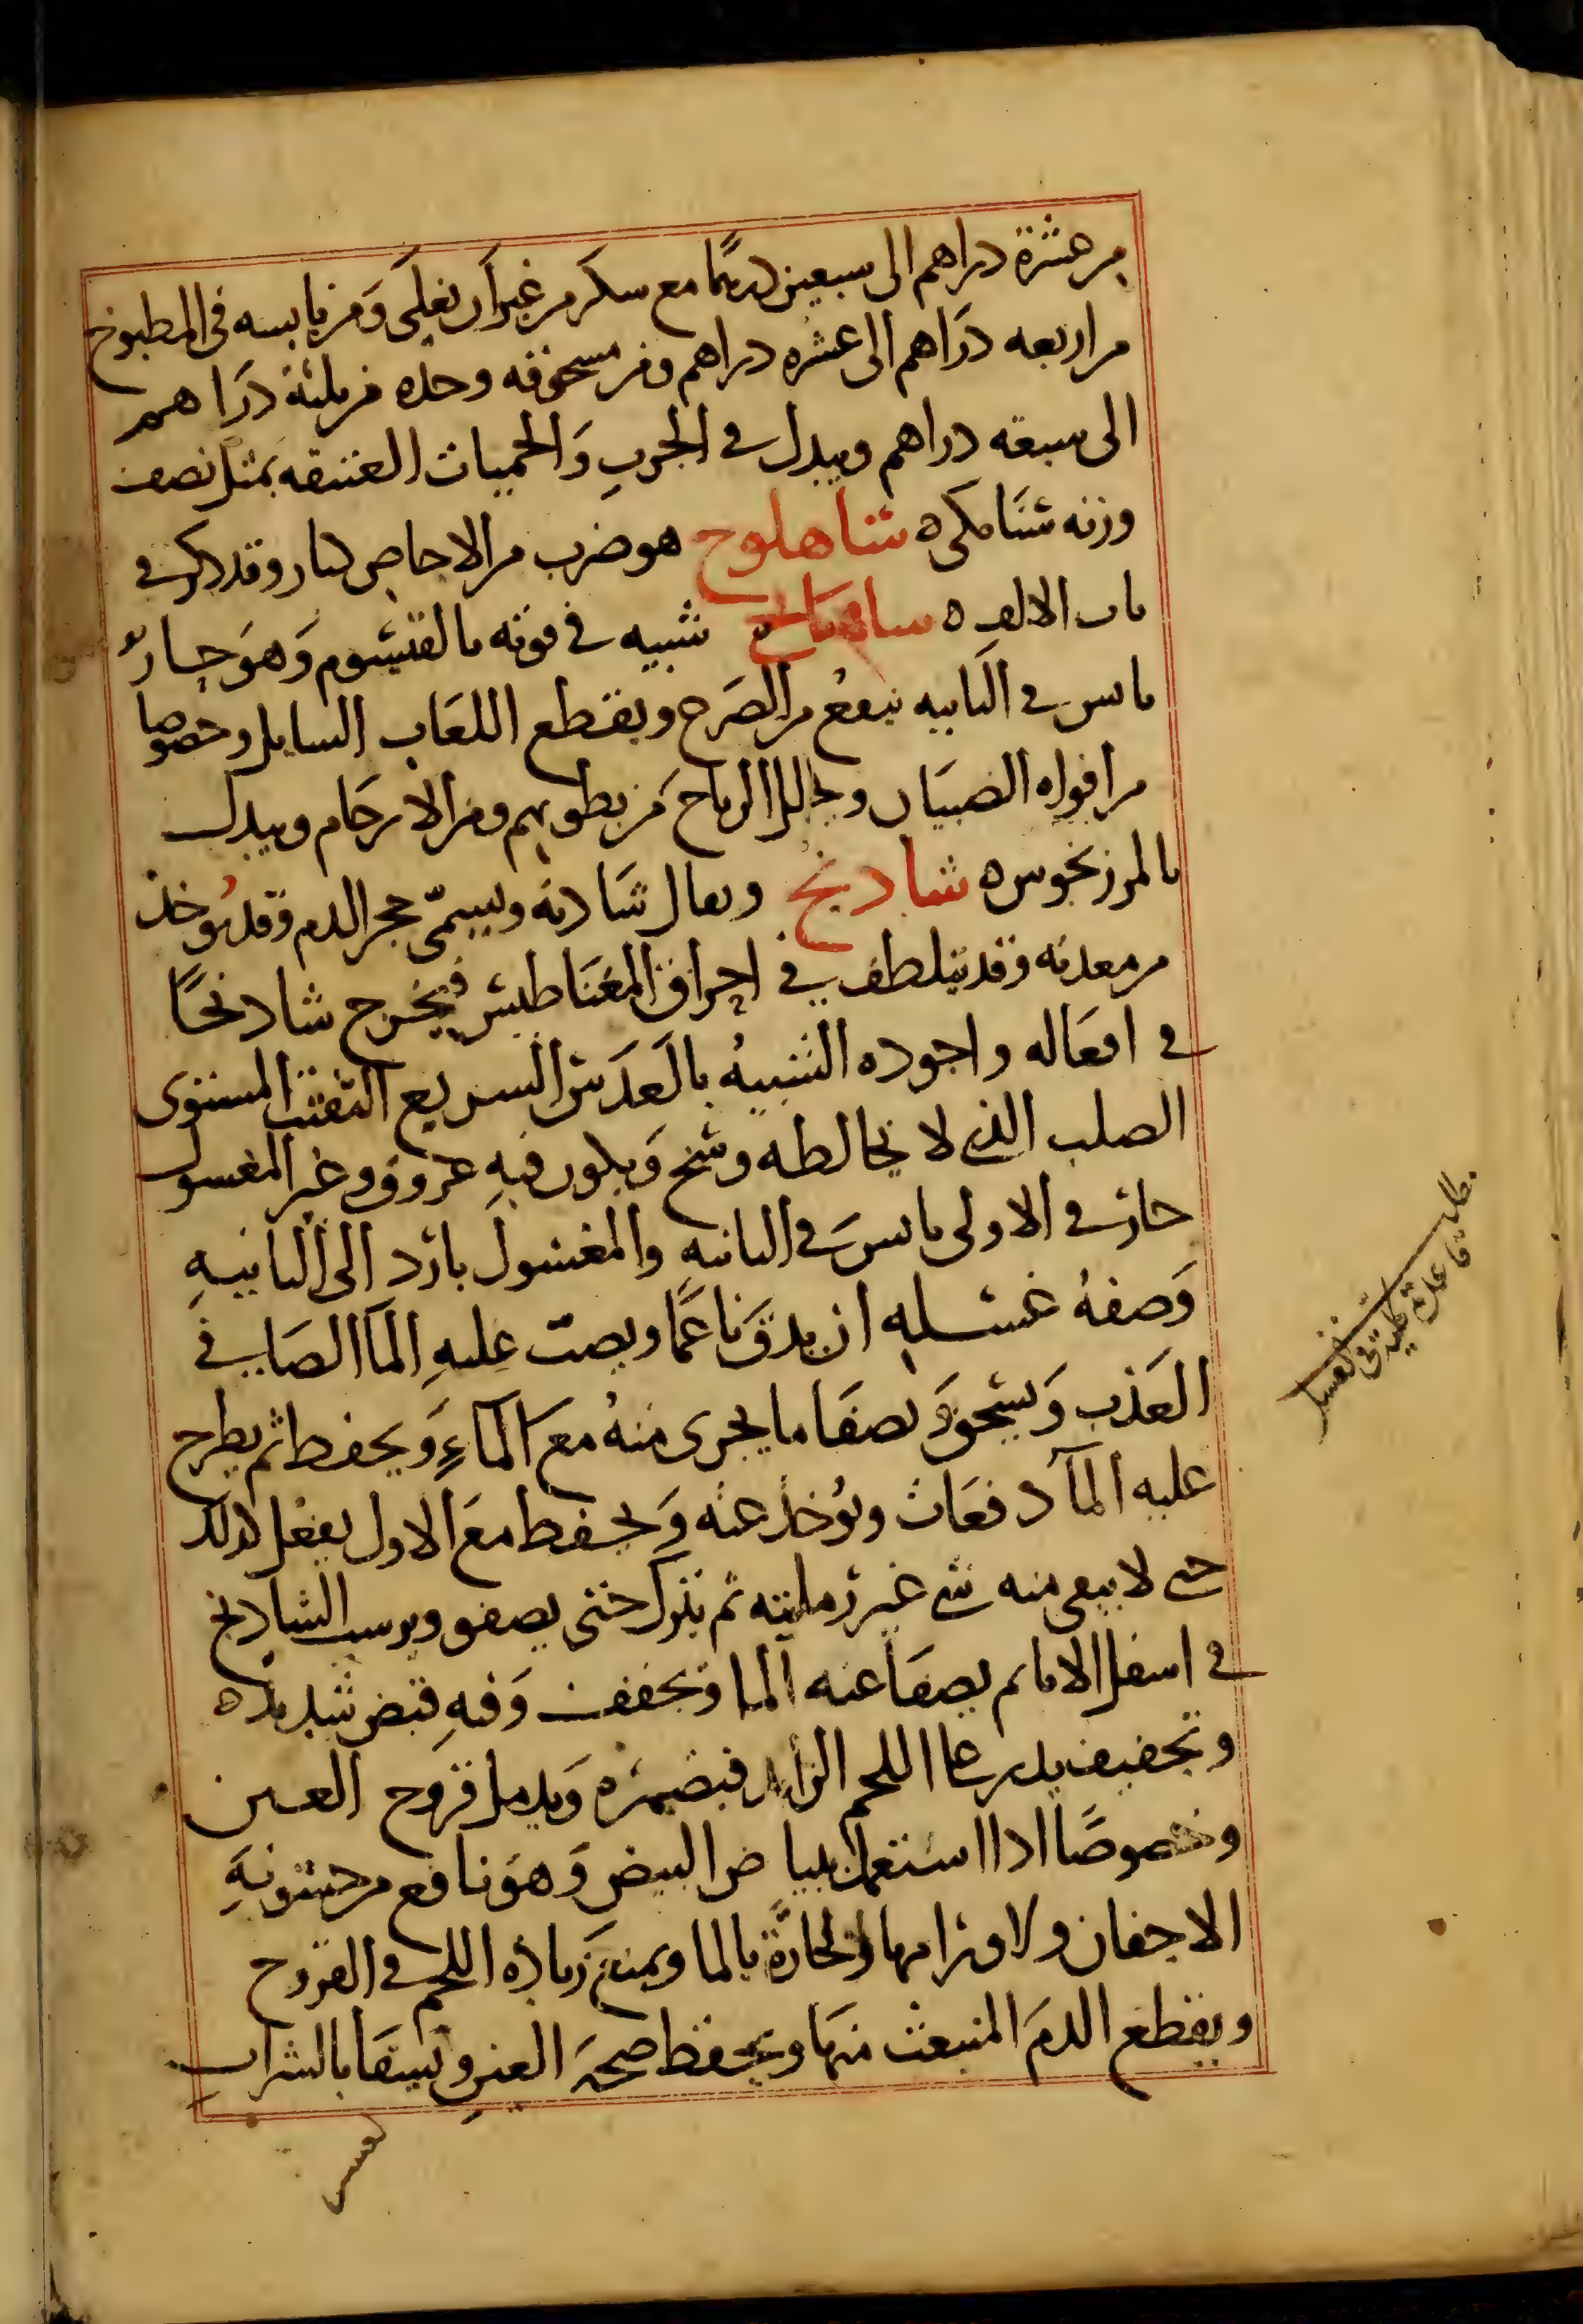 من عشرة دراهم الى سبعين درهما مع سكر من غير ان يغلى ومن يابسه فى المطبوخ
من اربعه دراهم الى عشره دراهم ومن مسحوقه وحده من ثلثة دراهم
الى سبعه دراهم ويبدل في الجرب والحميات العتيقه بمثل نصف
وزنه سنا مكى ه شاهلوج هو ضرب من الاجاص كبار وقد ذكر في
باب الالف ه شبيه في قوته بالقيسوم وهو حار
يابس في الثانيه ينفع من الصرع ويقطع اللعاب السايل وخصوصا
من افواه الصبيان ويحلل الرياح من بطونهم ومن الارحام ويبدل
بالمرزنجوس ه شادنج ويقال شادنه ويسمى حجر الدم وقد يوخذ
من معدنه وقد يتلطف في احراق المغناطيس فيخرج شادنجا
في افعاله واجوده الشبيه بالعدس السريع التفتت المستوى
الصلب الذي لا يخالطه وسخ ويكون فيه عروق وغير المغسول
حار في الاولى يابس في الثانيه والمغسول بارد الى الثانيه
وصفة غسله ان يدق ناعما ويصب عليه الما الصافي
العذب ويسحق ويصفا ما يجرى منه مع الماء ويحفظ ثم يطرح
عليه الما دفعات ويؤخذ عنه ويحفظ مع الاول يفعل كذلك
حتى لا يبقى منه شي غير رمليته ثم يترك حتى يصفو ويرسب الشادنج
في اسفل الانا ثم يصفا عنه الما ويجفف وفيه قبض شديد ه
وتجفيف يذر على اللحم الزايد فيضمره ويدمل قروح العين
وخصوصا اذا استعمل ببياض البيض وهو نافع من خشونة
الاجفان ولاورامها الحارة بالما ويمنع زيادة اللحم في القروح
ويقطع الدم المنبعث منها ويحفظ صحة العين ويسقا بالشراب
لعسر
مطلب
قاعدة كلية فى
الغسل